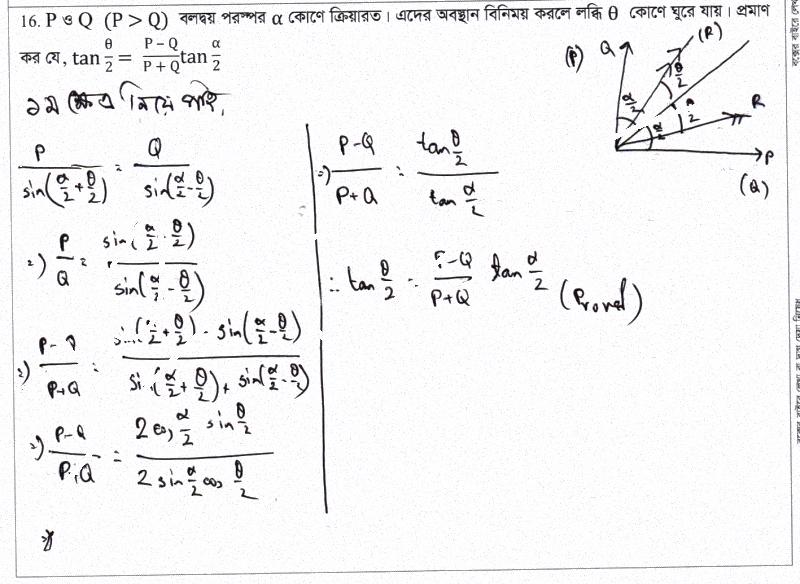 16. P ও Q (P > Q) বলদ্বয় পরস্পর α কোণে ক্রিয়ারত। এদের অবস্থান বিনিময় করলে লব্ধি θ কোণে ঘুরে যায়। প্রমাণ
কর যে, tan θ/2 = (P−Q)/(P+Q) tan α/2
১ম ক্ষেত্র নিয়ে পাই,
P/sin(α/2 + θ/2) = Q/sin(α/2 - θ/2)
⇒) P/Q = sin(α/2 θ/2)/sin(α/2 - θ/2)
⇒) P-Q/P+Q = sin(α/2 + θ/2) - sin(α/2 - θ/2)/sin(α/2 + θ/2) + sin(α/2 - θ/2)
⇒) P-Q/P+Q = 2 cos α/2 sin θ/2 / 2 sin α/2 cos θ/2
⇒) P-Q/P+Q = tan θ/2 / tan α/2
∴ tan θ/2 = P-Q/P+Q tan α/2 (Proved)
(P) Q (R)
α/2 θ/2
α/2 θ/2 R
P
(Q)